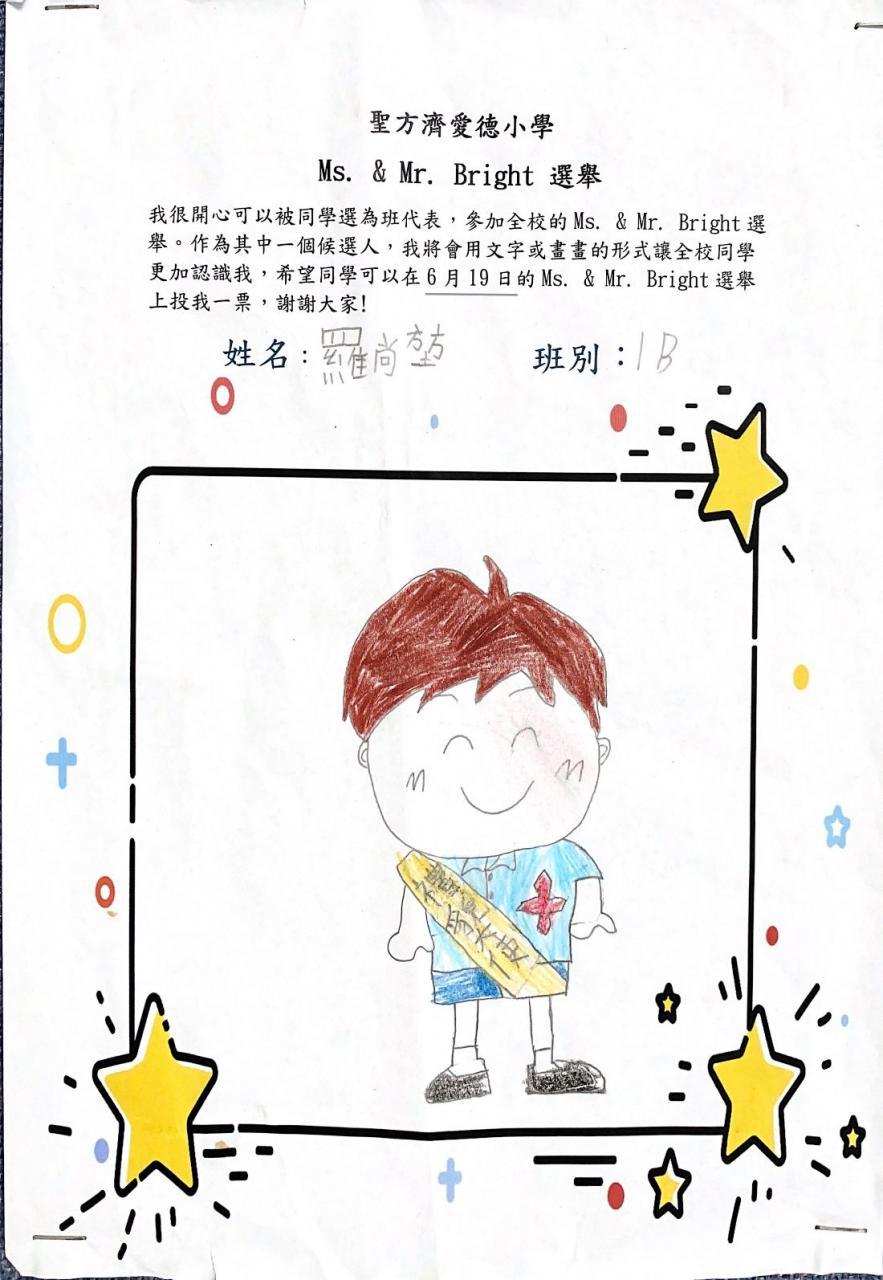 聖方濟愛德小學
Ms. & Mr. Bright 選舉
我很開心可以被同學選為班代表，參加全校的 Ms. & Mr. Bright 選
舉。作為其中一個候選人，我將會用文字或畫畫的形式讓全校同學
更加認識我，希望同學可以在 6 月 19 日的 Ms. & Mr. Bright 選舉
上投我一票，謝謝大家!
姓名：羅尚堃 班別：1B
禮貌大使